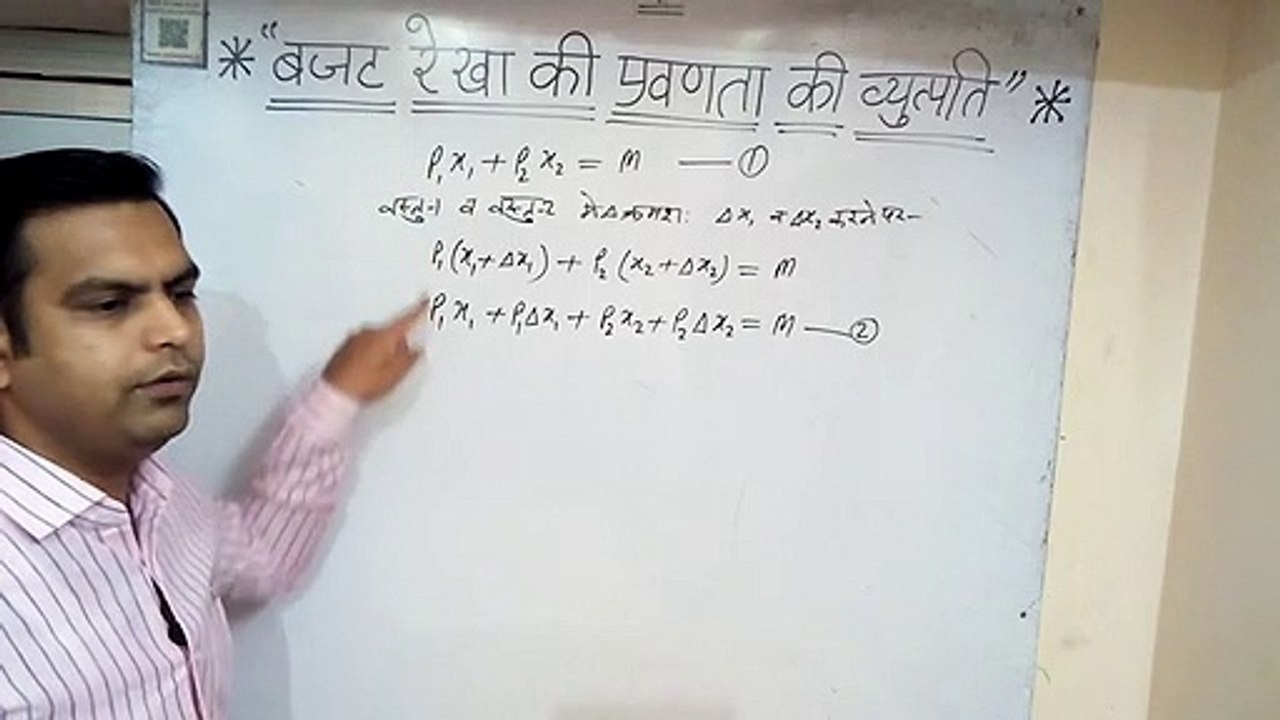 * "बजट रेखा की प्रवणता की व्युत्पति" *
P₁x₁ + P₂x₂ = M — ①
वस्तु-1 व वस्तु-2 में Δ क्रमशः Δx₁ व Δx₂ करने पर-
P₁(x₁+Δx₁) + P₂(x₂+Δx₂) = M
P₁x₁ + P₁Δx₁ + P₂x₂ + P₂Δx₂ = M — ②